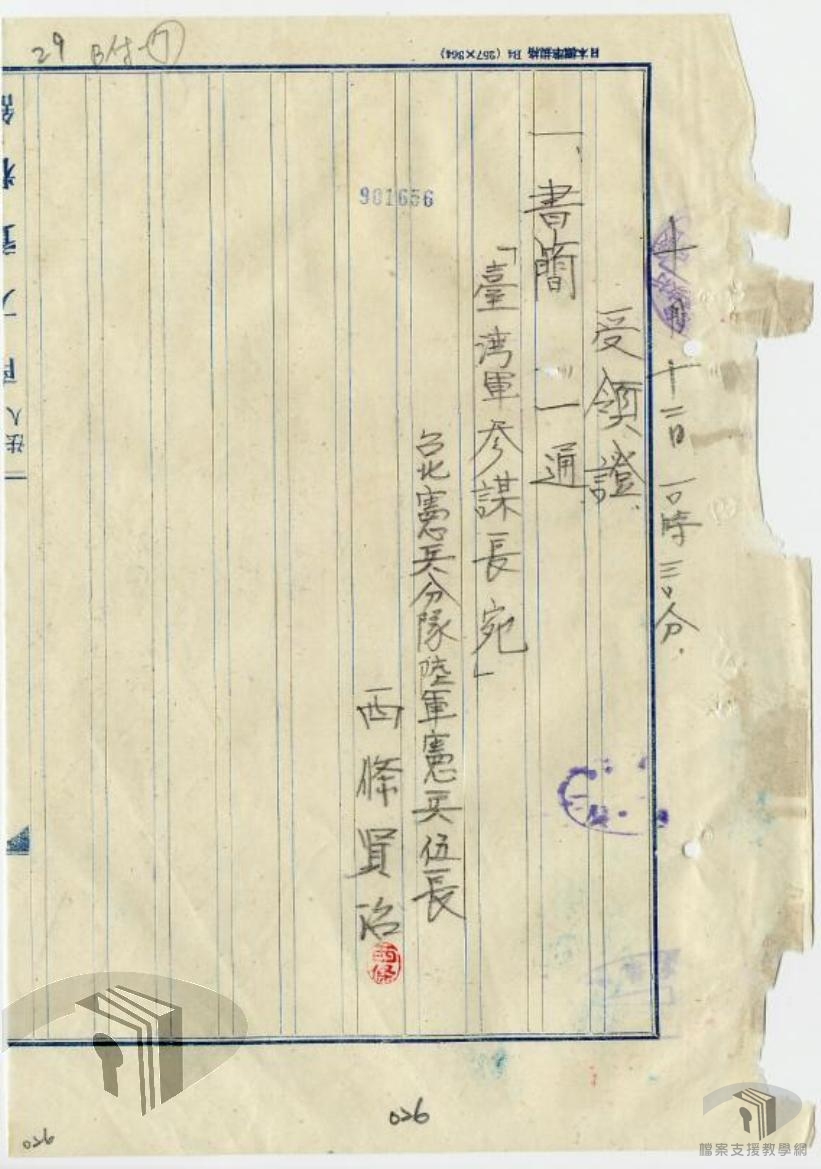 29 B付-⑦
日本標準規格 B4 (257×364)
十月十二日 一〇時三〇分.
受領證.
一、書簡 一通
「臺湾軍參謀長宛」
台北憲兵分隊陸軍憲兵伍長
西條賢治
西條
901656
026
026
檔案支援教學網